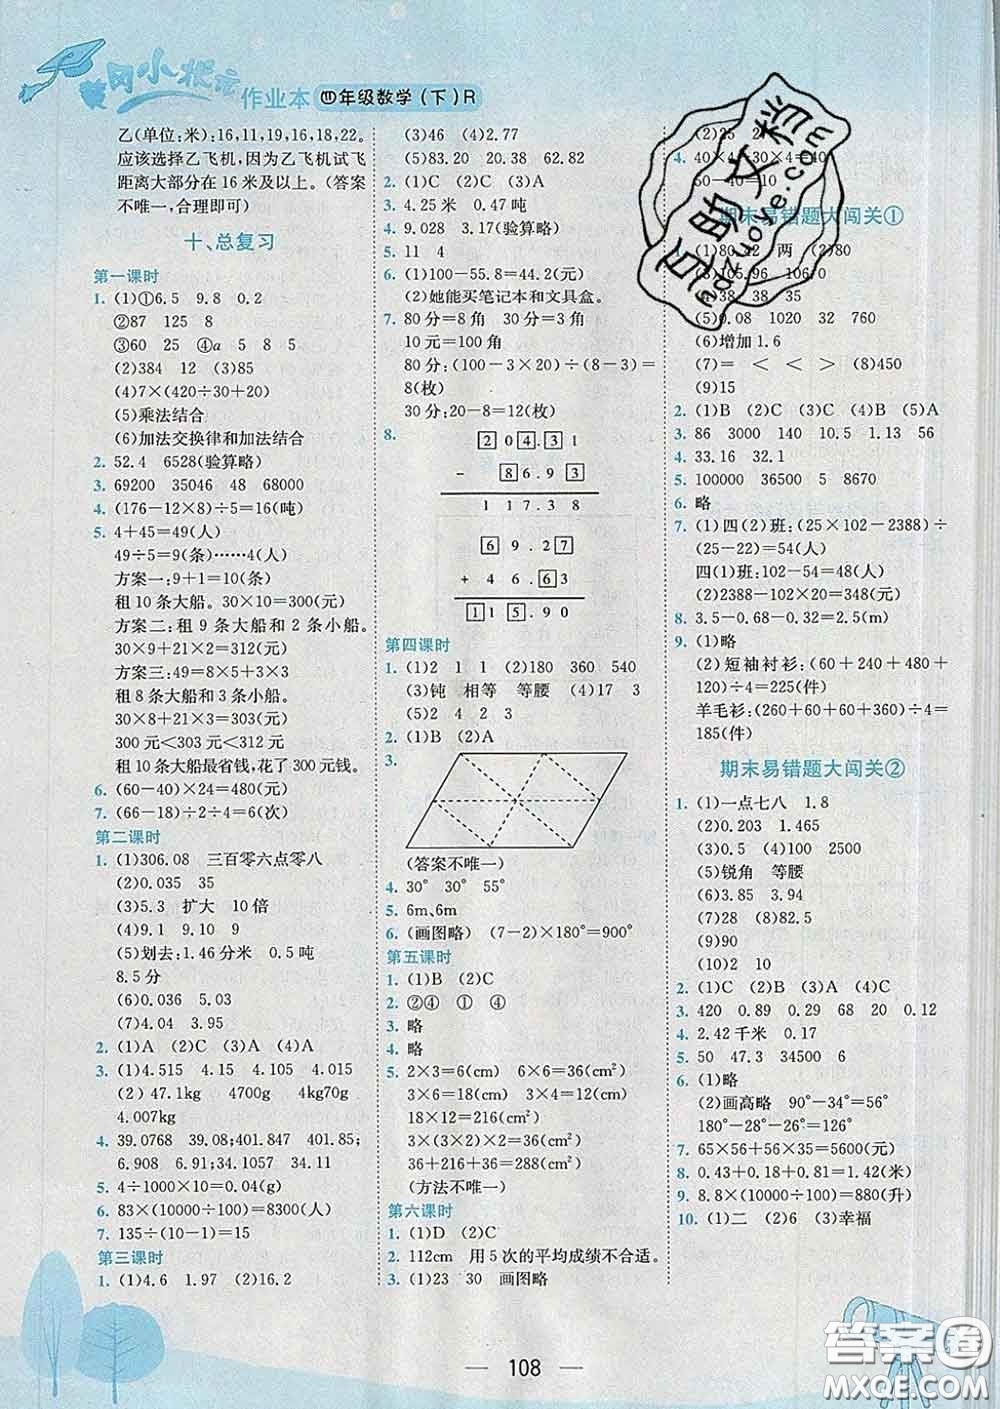 黄冈小状元作业本 四年级数学(下)R
乙(单位:米):16,11,19,16,18,22。
应该选择乙飞机,因为乙飞机试飞
距离大部分在 16 米及以上。(答案
不唯一,合理即可)
十、总复习
第一课时
1. (1)①6.5 9.8 0.2
②87 125 8
③60 25 ④a 5 8 5
(2)384 12 (3)85
(4)7×(420÷30+20)
(5)乘法结合
(6)加法交换律和加法结合
2. 52.4 6528(验算略)
3. 69200 35046 48 68000
4. (176-12×8)÷5=16(吨)
5. 4+45=49(人)
49÷5=9(条)……4(人)
方案一:9+1=10(条)
租 10 条大船。30×10=300(元)
方案二:租 9 条大船和 2 条小船。
30×9+21×2=312(元)
方案三:49=8×5+3×3
租 8 条大船和 3 条小船。
30×8+21×3=303(元)
300 元<303 元<312 元
租 10 条大船最省钱,花了 300 元钱。
6. (60-40)×24=480(元)
7. (66-18)÷2÷4=6(次)
第二课时
1. (1)306.08 三百零六点零八
(2)0.035 35
(3)5.3 扩大 10 倍
(4)9.1 9.10 9
(5)划去:1.46 分米 0.5 吨
8.5 分
(6)0.036 5.03
(7)4.04 3.95
2. (1)A (2)C (3)A (4)A
3. (1)4.515 4.15 4.105 4.015
(2)47.1kg 4700g 4kg70g
4.007kg
4. 39.0768 39.08;401.847 5.18;
6.908 6.91;34.1057 34.11
5. 4÷1000×10=0.04(g)
6. 83×(10000÷100)=8300(人)
7. 135÷(10-1)=15
第三课时
1. (1)4.6 1.97 (2)16.2
(3)46 (4)2.77
(5)83.20 20.38 62.82
2. (1)C (2)C (3)A
3. 4.25 米 0.47 吨
4. 9.028 3.17(验算略)
5. 11 4
6. (1)100-55.8=44.2(元)
(2)她能买笔记本和文具盒。
7. 80 分=8 角 30 分=3 角
10 元=100 角
80 分:(100-3×20)÷(8-3)=
8(枚)
30 分:20-8=12(枚)
8.
2 0 4 . 3 1
- 8 6 . 9 3
1 1 7 . 3 8
6 9 . 2 7
+ 4 6 . 6 3
1 1 5 . 9 0
第四课时
1. (1)2 1 1 (2)180 360 540
(3)钝 相等 等腰 (4)17 3
(5)2 4 2 3
2. (1)B (2)A
3.
(答案不唯一)
4. 30° 30° 55°
5. 6m、6m
6. (画图略) (7-2)×180°=900°
第五课时
1. (1)B (2)C
2. ②④ ① ④
3. 略
4. 略
5. 2×3=6(cm) 6×6=36(cm²)
3×6=18(cm) 3×4=12(cm)
18×12=216(cm²)
3×(3×2)×2=36(cm²)
36+216+36=288(cm²)
(方法不唯一)
第六课时
1. (1)D (2)C
2. 112cm 用 5 次的平均成绩不合适。
3. (1)23 30 画图略
(2)25
4.
60-40=10
期末易错题大闯关①
1. (1)80.42 两 (2)80
(3)105.96 106.0
38 38 35
(5)0.08 1020 32 760
(6)增加 1.6
(7)= < > < (8)450
(9)15
2. (1)B (2)C (3)C (4)B (5)A
3. 86 3000 140 10.5 1.13 56
4. 33.16 32.1
5. 100000 36500 6.5 9870
6. 略
7. (1)四(2)班:(25×102-2388)÷
(25-22)=54(人)
四(1)班:102-54=48(人)
(2)2388-102×20=348(元)
8. 3.5-0.68-0.32=2.5(m)
9. (1)略
(2)短袖衬衫:(60+240+480+
120)÷4=225(件)
羊毛衫:(260+60+60+360)÷4=
185(件)
期末易错题大闯关②
1. (1)一点七八 1.8
(2)0.203 1.465
(3)0.5 (4)100 2500
(5)锐角 等腰
(6)3.85 3.94
(7)28 (8)82.5
(9)90
(10)2 10
2. (1)C (2)B (3)A (4)C
3. 420 0.89 0.29 68 20 12
4. 2.42 千米 0.17
5. 50 47.3 34500 6
6. (1)略
(2)画高略 90°-34°=56°
180°-28°-26°=126°
7. 65×56+56×35=5600(元)
8. 0.43+0.18+0.81=1.42(米)
9. 8.8×(1000÷10)=880(升)
10. (1)二 (2)6 (3)幸福
108
答案圈
MXQE.COM